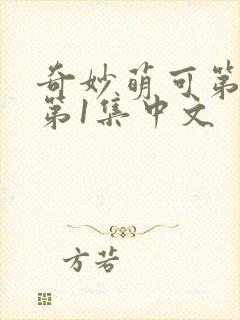 奇妙萌可第
第1集中文
方若